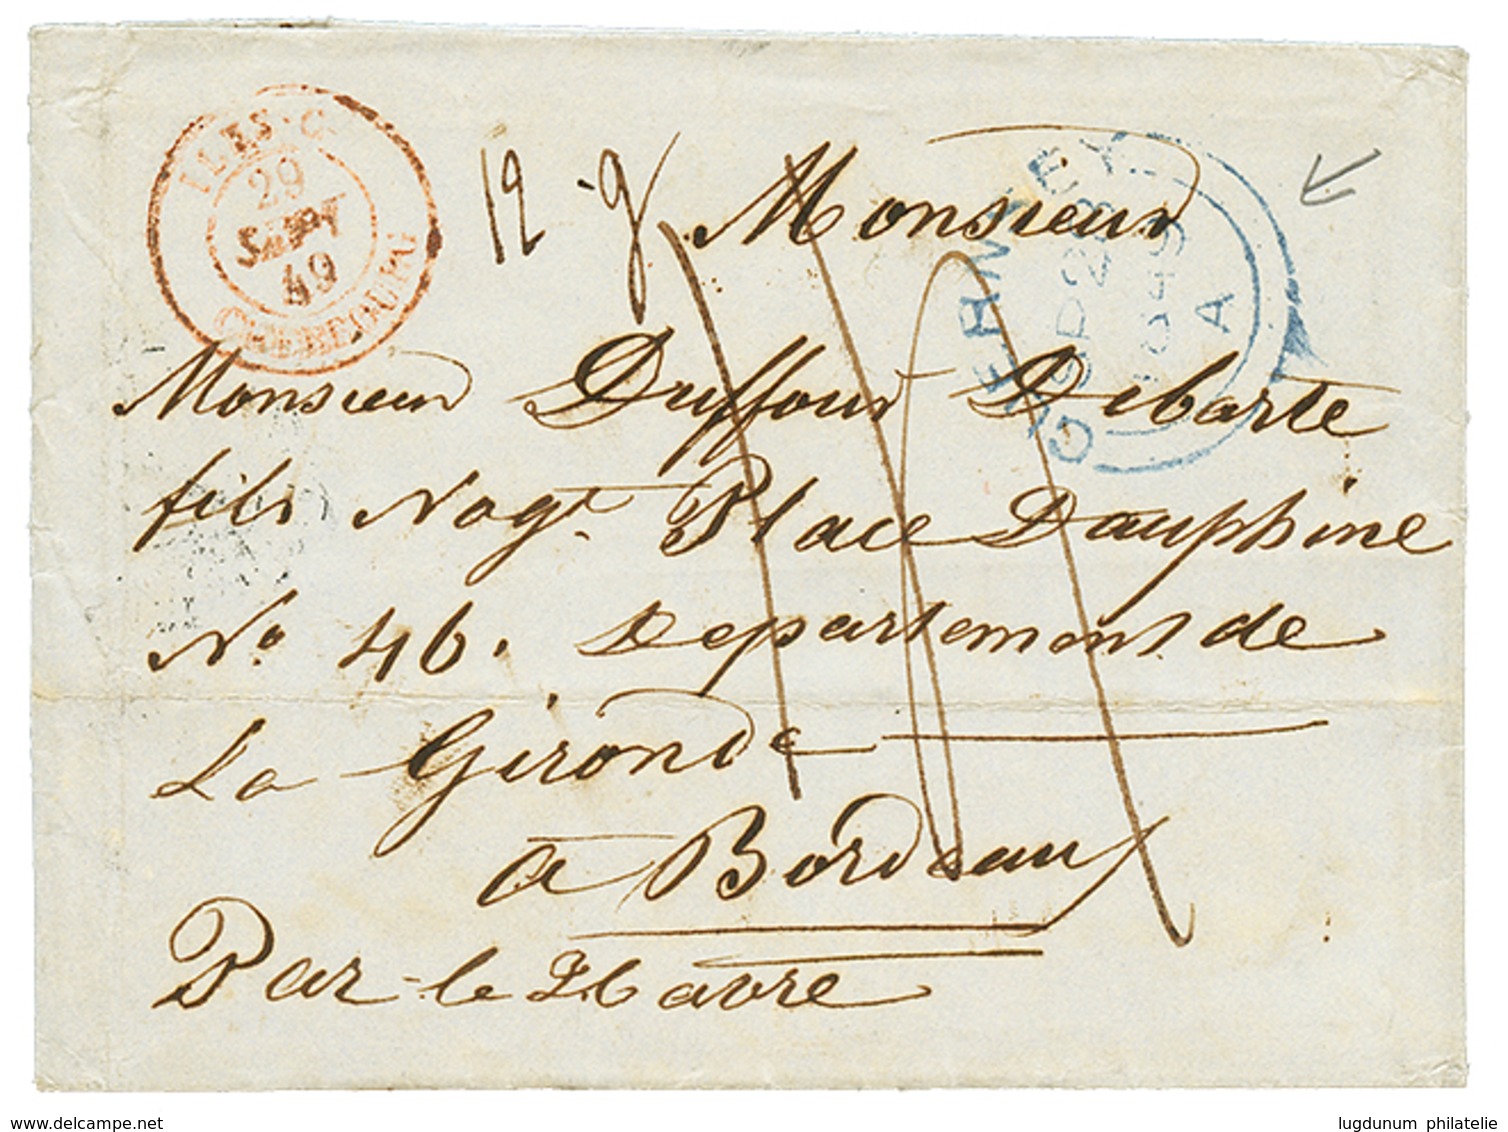 ILES-C.
29
SEPT
49
CHERBOURG
12-g
GUERNSEY
SP 28
1849
A
Monsieur
Monsieur Duffour Debarte
fils Nogt Place Dauphine
No 46. Departement de
La Gironde
a Bordeaux
Par le Havre
www.delcampe.net
lugdunum philatelie